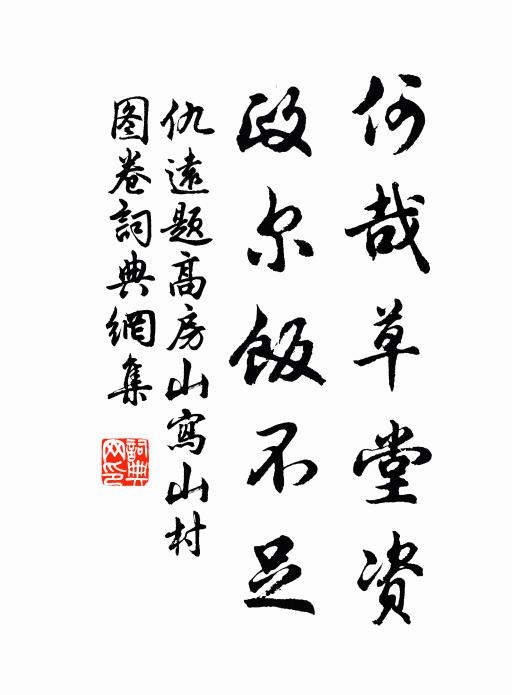 何哉草堂资
政尔饭不足
仇遠題高房山寫山村
图卷詞典網集
詞典网印